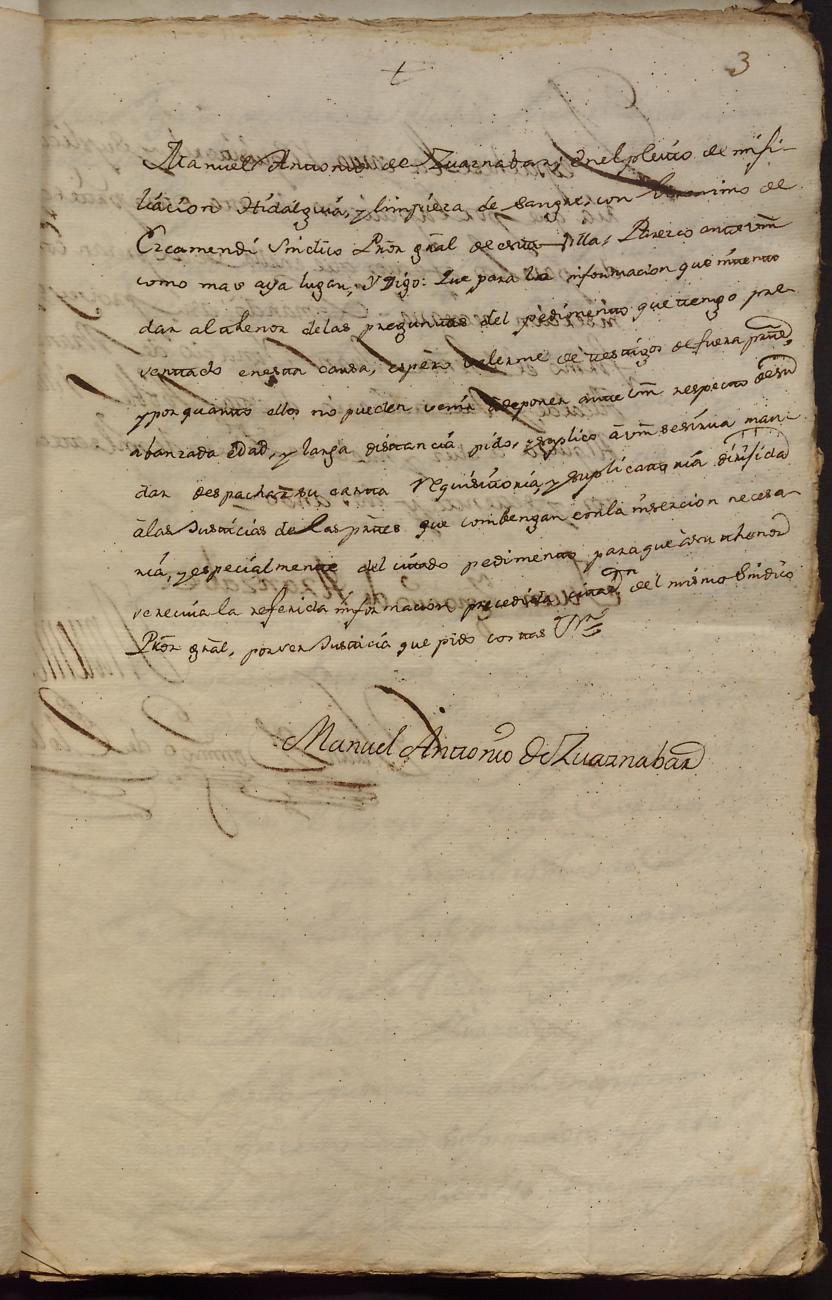 3
+
Manuel Antonio de Zuarnabar, en el pleito de mi fi-
liacion Hidalguia, y limpieza de Sangre, con Geronimo de
Ercamendi Sindico Pror gral de esta Villa, Parezco ante vm
como mas aya lugar, y Digo: Que para la informacion que intento
dar al thenor de las preguntas del pedimento que tengo pre-
sentado en esta causa, espero valerme de testigos de fuera parte,
y por quanto ellos no pueden venir a deponer ante vm respecto de su
abanzada edad, y larga distancia pido, y suplico à vm se sirva man-
dar despachar su carta requisitoria, y suplicatoria dirijida
à las Justicias de las partes que combengan con la insercion necesa-
ria, y especialmente del citado pedimento para que à su thenor
se reciva la referida informacion precedida citasn del mismo Sindico
Pror gral, por ser Justicia que pido costas
Manuel Antonio de Zuarnabar